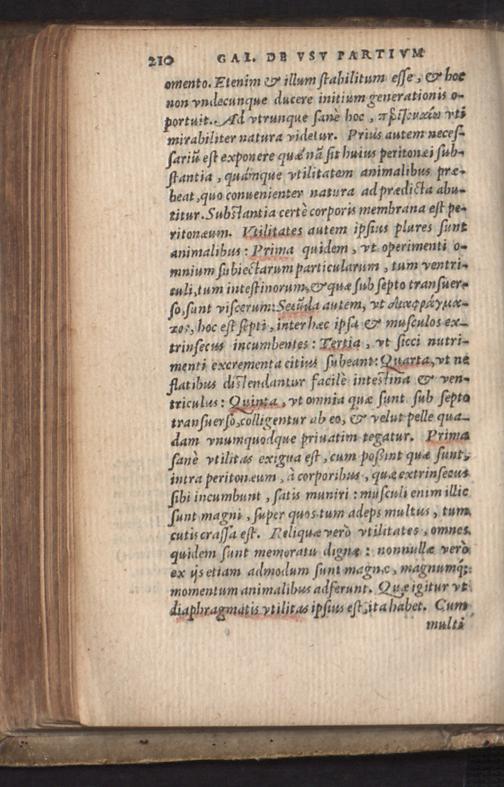 210 GAL. DE VSV PARTIVM
omento. Etenim & illum stabilitum esse, & hoc
non vndecunque ducere initium generationis o-
portuit. Ad vtrunque sanè hoc, vti
mirabiliter natura videtur. Prius autem neces-
sariũ est exponere quæ nã sit huius peritonæi sub-
stantia, quámque vtilitatem animalibus præ-
beat, quo conuenienter natura ad prædicta abu-
titur. Substantia certè corporis membrana est pe-
ritonæum. Vtilitates autem ipsius plures sunt
animalibus: Prima quidem, vt operimenti o-
mnium subiectarum particularum, tum ventri-
culi, tum intestinorum, & quæ sub septo transuer-
so, sunt viscerum: Secũda autem, vt διαφράγμα-
τος, hoc est septi, inter hæc ipsa & musculos ex-
trinsecus incumbentes: Tertia, vt sicci nutri-
menti excrementa citius subeant: Quarta, vt ne
flatibus distendantur facilè intestina & ven-
triculus: Quinta, vt omnia quæ sunt sub septo
transuerso, colligentur ab eo, & velut pelle qua-
dam vnumquodque priuatim tegatur. Prima
sanè vtilitas exigua est, cum possint quæ sunt
intra peritonæum, à corporibus, quæ extrinsecus
sibi incumbunt, satis muniri: musculi enim illic
sunt magni, super quos tum adeps multus, tum
cutis crassa est. Reliquæ verò vtilitates, omnes
quidem sunt memoratu dignæ: nonnullæ verò
ex ijs etiam admodum sunt magnæ, magnumq;
momentum animalibus adferunt. Quæ igitur vt
diaphragmatis vtilitas ipsius est, ita habet. Cum
multi